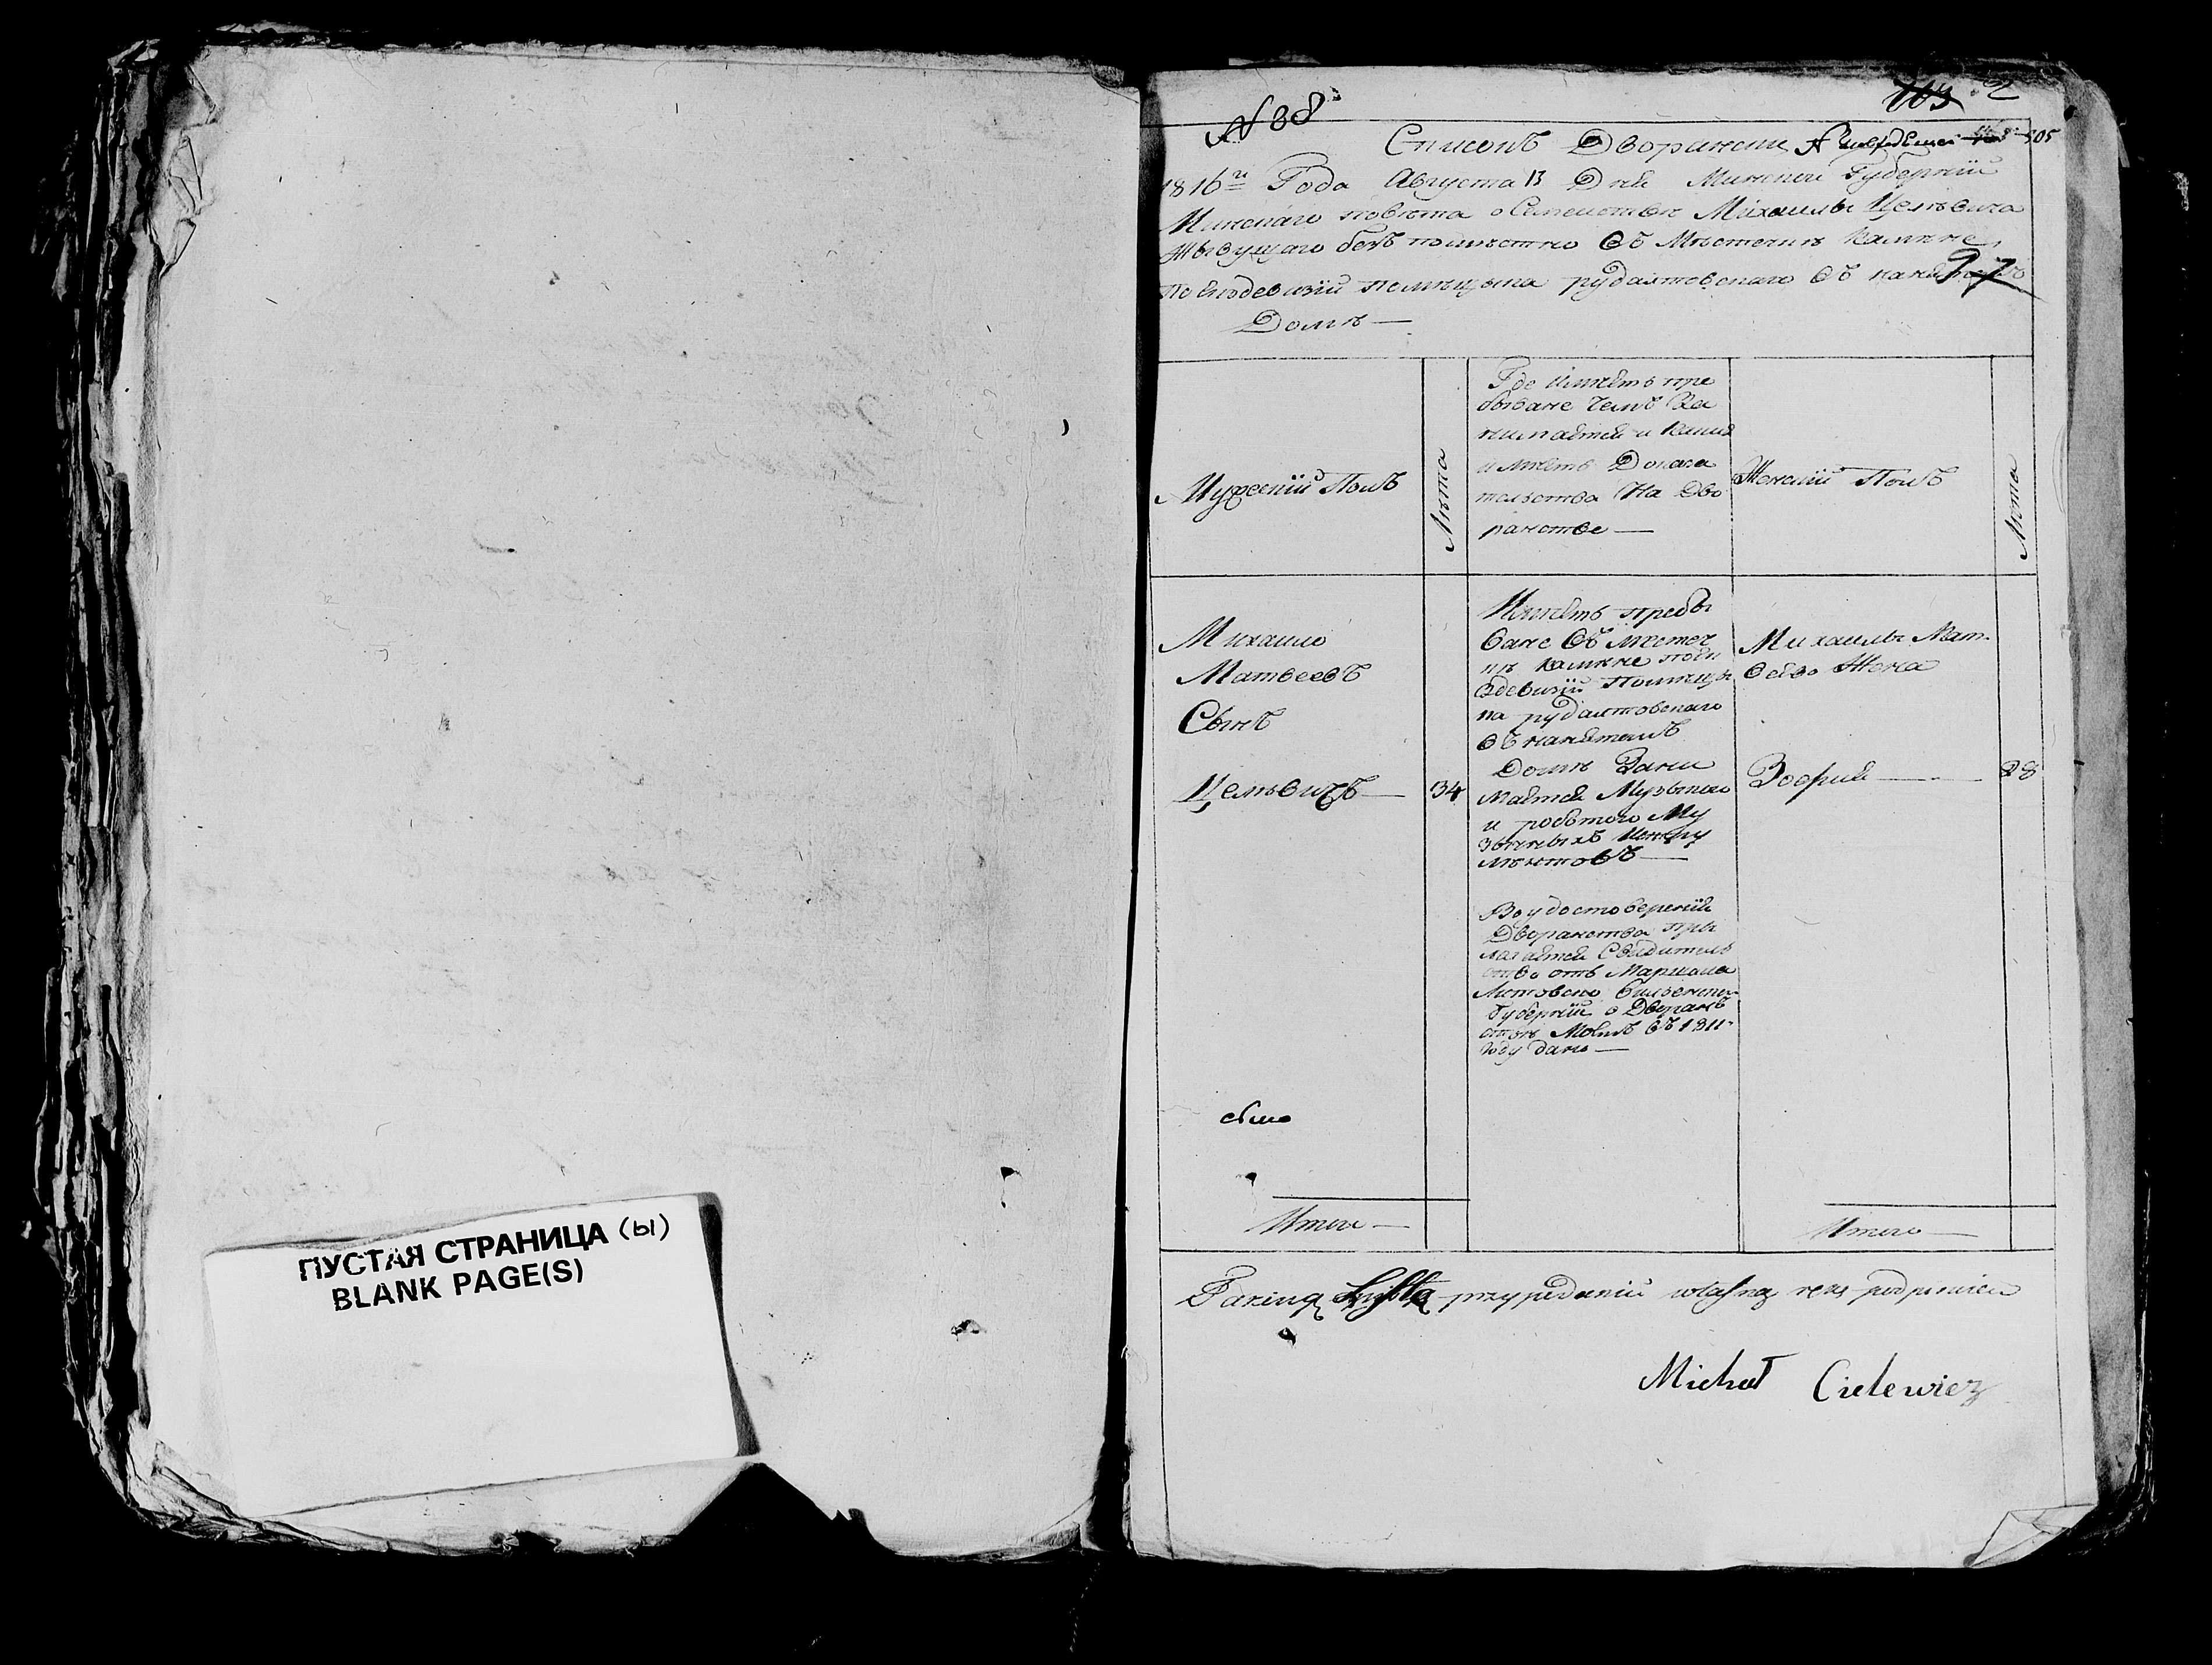 ПУСТАЯ СТРАНИЦА (ы)
BLANK PAGE(S)
N 38
103 2
Списокъ Дворански 505
1816го Года Августа 13 Дня Минской Губернїи
Минскаго повѣта о Семействѣ Михаилы Целѣвича
Жывущаго безъ помѣстно Въ Мѣстечкѣ Камѣне,
помѣщыка рудалтовскаго Въ 97
Домѣ —
Мужескїй Полъ
Лѣта
Где Имѣетъ пре
быване Чемъ За
нимается и Какия
имѣетъ Доказа
телства На Дво
ранстве —
Женскїй Полъ
Лѣта
Михаило
Матвеевъ
Сынъ
Целѣвичъ — 34
Имѣетъ пребы
ване Въ местеч
кѣ Камѣне
Помѣщы
ка рудалтовскаго
Въ нанятомъ
Домѣ Зани
мается Музыкою
и роботою Му
зычныхъ Инстру
мѣнтовъ —
Во удостоверенїи
Дворанства пры
лагается Свидитель
ство отъ Маршала
Литовско Виленской
Губернїи о Дворан
ствѣ Моемъ Въ 1811
году дано —
Михаилы Мат
вѣево Жена
Зофия — 28
Итого —
Итого —
Takiną przy podaniu własną ręką podpisuię
Michał Cielewicz